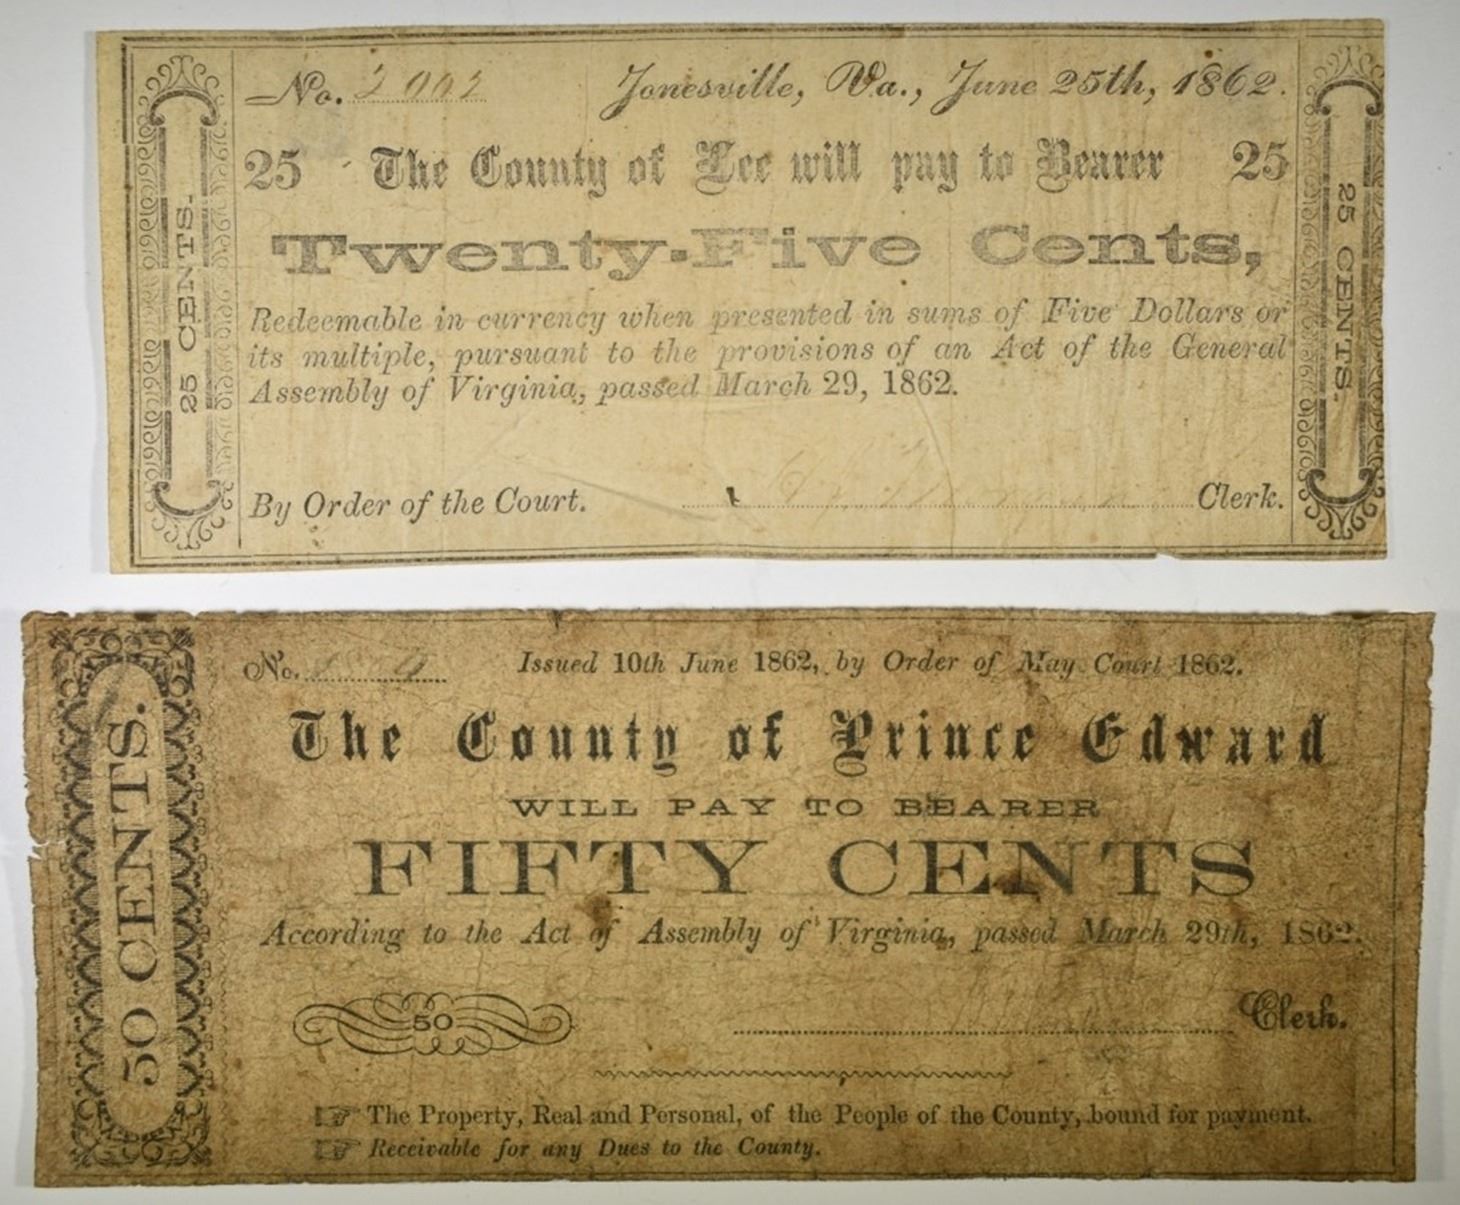 No. 2002 Jonesville, Va., June 25th, 1862.
25 The County of Lee will pay to Bearer 25
Twenty-Five Cents,
Redeemable in currency when presented in sums of Five Dollars or
its multiple, pursuant to the provisions of an Act of the General
Assembly of Virginia, passed March 29, 1862.
By Order of the Court. Clerk.
25 CENTS.
25 CENTS.
No. Issued 10th June 1862, by Order of May Court 1862.
The County of Prince Edward
WILL PAY TO BEARER
FIFTY CENTS
According to the Act of Assembly of Virginia, passed March 29th, 1862.
50 Clerk.
The Property, Real and Personal, of the People of the County, bound for payment.
Receivable for any Dues to the County.
50 CENTS.